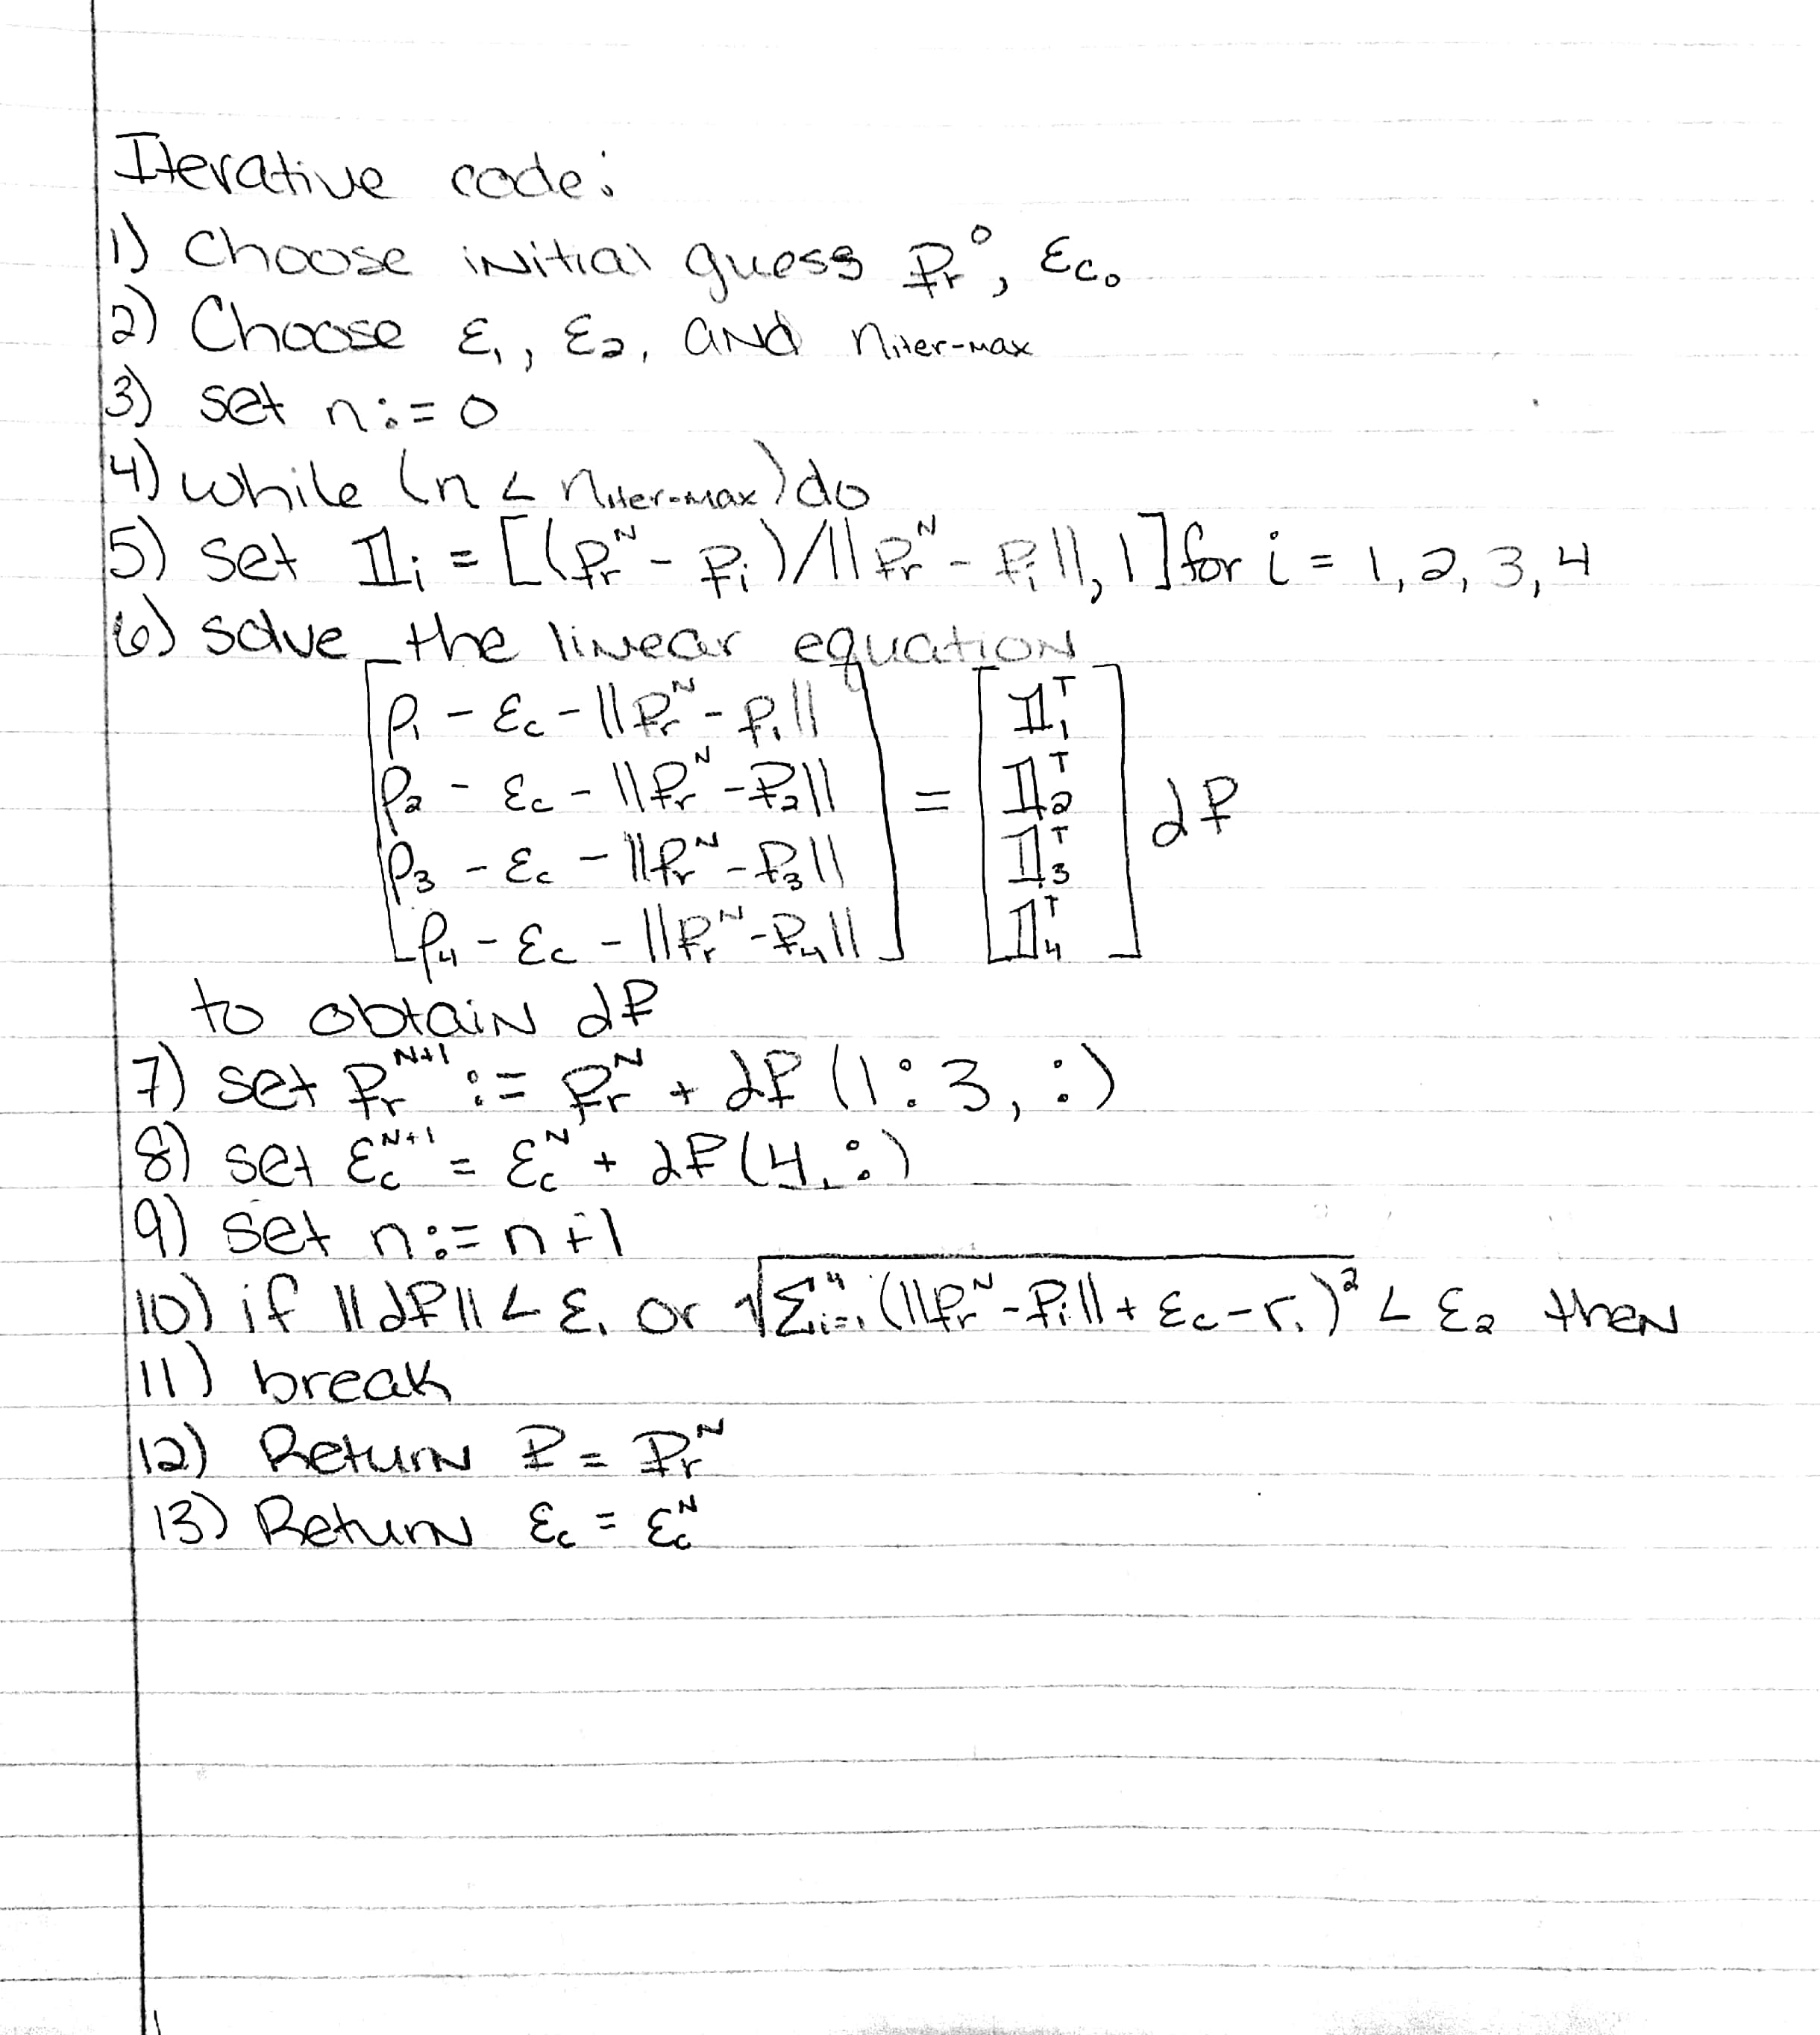 Iterative code:
1) Choose initial guess P_r^0, ε_c0
2) Choose ε_1, ε_2, and n_iter-max
3) set n := 0
4) while (n < n_iter-max) do
5) set 𝟙_i = [(P_r^N - P_i)/||P_r^N - P_i||, 1] for i = 1, 2, 3, 4
6) solve the linear equation
[ρ_1 - ε_c - ||P_r^N - P_1||] = [𝟙_1^T] dP
[ρ_2 - ε_c - ||P_r^N - P_2||] [𝟙_2^T]
[ρ_3 - ε_c - ||P_r^N - P_3||] [𝟙_3^T]
[ρ_4 - ε_c - ||P_r^N - P_4||] [𝟙_4^T]
to obtain dP
7) set P_r^N+1 := P_r^N + dP (1:3, :)
8) set ε_c^N+1 = ε_c^N + dP (4, :)
9) set n := n+1
10) if ||dP|| < ε_1 or √Σ_i=1^4 (||P_r^N - P_i|| + ε_c - r_i)^2 < ε_2 then
11) break
12) Return P = P_r^N
13) Return ε_c = ε_c^N